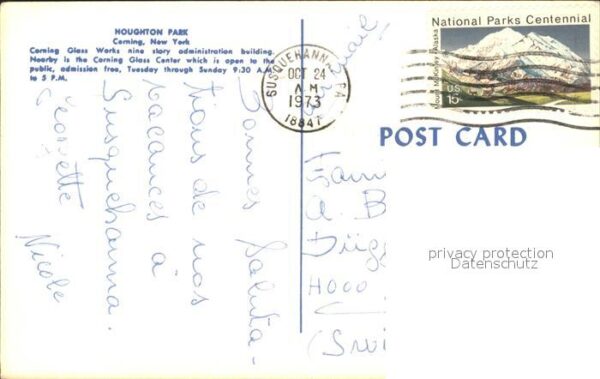 HOUGHTON PARK
Corning, New York
Corning Glass Works nine story administration building.
Nearby is the Corning Glass Center which is open to the
public, admission free, Tuesday through Sunday 9:30 A.M.
to 5 P.M.
Bonnes Saluta-
tions de nos
vacances à
Susquehanna.
Georgette
Nicole
SUSQUEHANNA, PA
OCT 24
AM
1973
18847
National Parks Centennial
Mount McKinley Alaska
U.S.
15c
POST CARD
A. B
HOCO
(Swi
privacy protection
Datenschutz